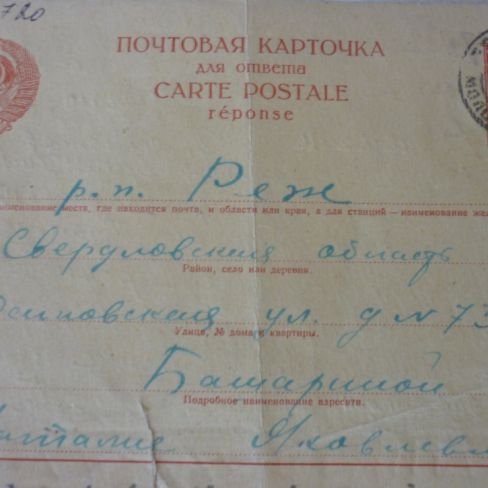 720
ПОЧТОВАЯ КАРТОЧКА
для ответа
CARTE POSTALE
réponse
р.п. Реж
наименование места, где находится почта, и области или края, а для станций — наименование же
Свердловская область
Район, село или деревня.
ул. д № 73
Улица, № дома и квартиры.
Батариной
Подробное наименование адресата.
Наталие Яковлевн